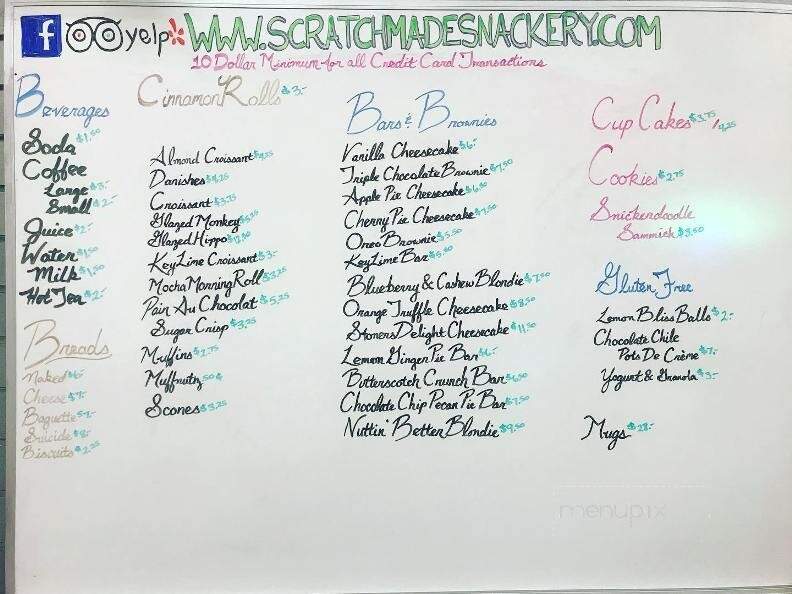 f yelp WWW.SCRATCHMADESNACKERY.COM
10 Dollar Minimum for all Credit Card Transactions
Beverages
Soda $1.50
Coffee
Large $3.-
Small $2.-
Juice $2.-
Water $1.50
Milk $1.50
Hot Tea $2.-
Breads
Naked $6.-
Cheese $7.-
Baguette $7.-
Suicide $8.-
Biscuits $2.25
Cinnamon Rolls $3.-
Almond Croissant $4.25
Danishes $4.25
Croissant $3.75
Glazed Monkey
Glazed Hippo
Key Lime Croissant $3.-
Mocha Morning Roll $3.25
Pain Au Chocolat $5.25
Sugar Crisp $3.25
Muffins $2.75
Muffnutz 50¢
Scones $3.25
Bars & Brownies
Vanilla Cheesecake $6.-
Triple Chocolate Brownie $7.50
Apple Pie Cheesecake $6.50
Cherry Pie Cheesecake $7.50
Oreo Brownie $5.50
Key Lime Bar $5.50
Blueberry & Cashew Blondie $7.50
Orange Truffle Cheesecake $8.50
Stoners Delight Cheesecake $11.50
Lemon Ginger Pie Bar $6.-
Butterscotch Crunch Bar $6.50
Chocolate Chip Pecan Pie Bar $7.50
Nuttin' Better Blondie $9.50
Cup Cakes $3.75 / 4.25
Cookies $2.75
Snickerdoodle
Sammich $3.50
Gluten Free
Lemon Bliss Balls $2.-
Chocolate Chile
Pots De Crème $7.-
Yogurt & Granola $3.-
Mugs $28.-
menupix